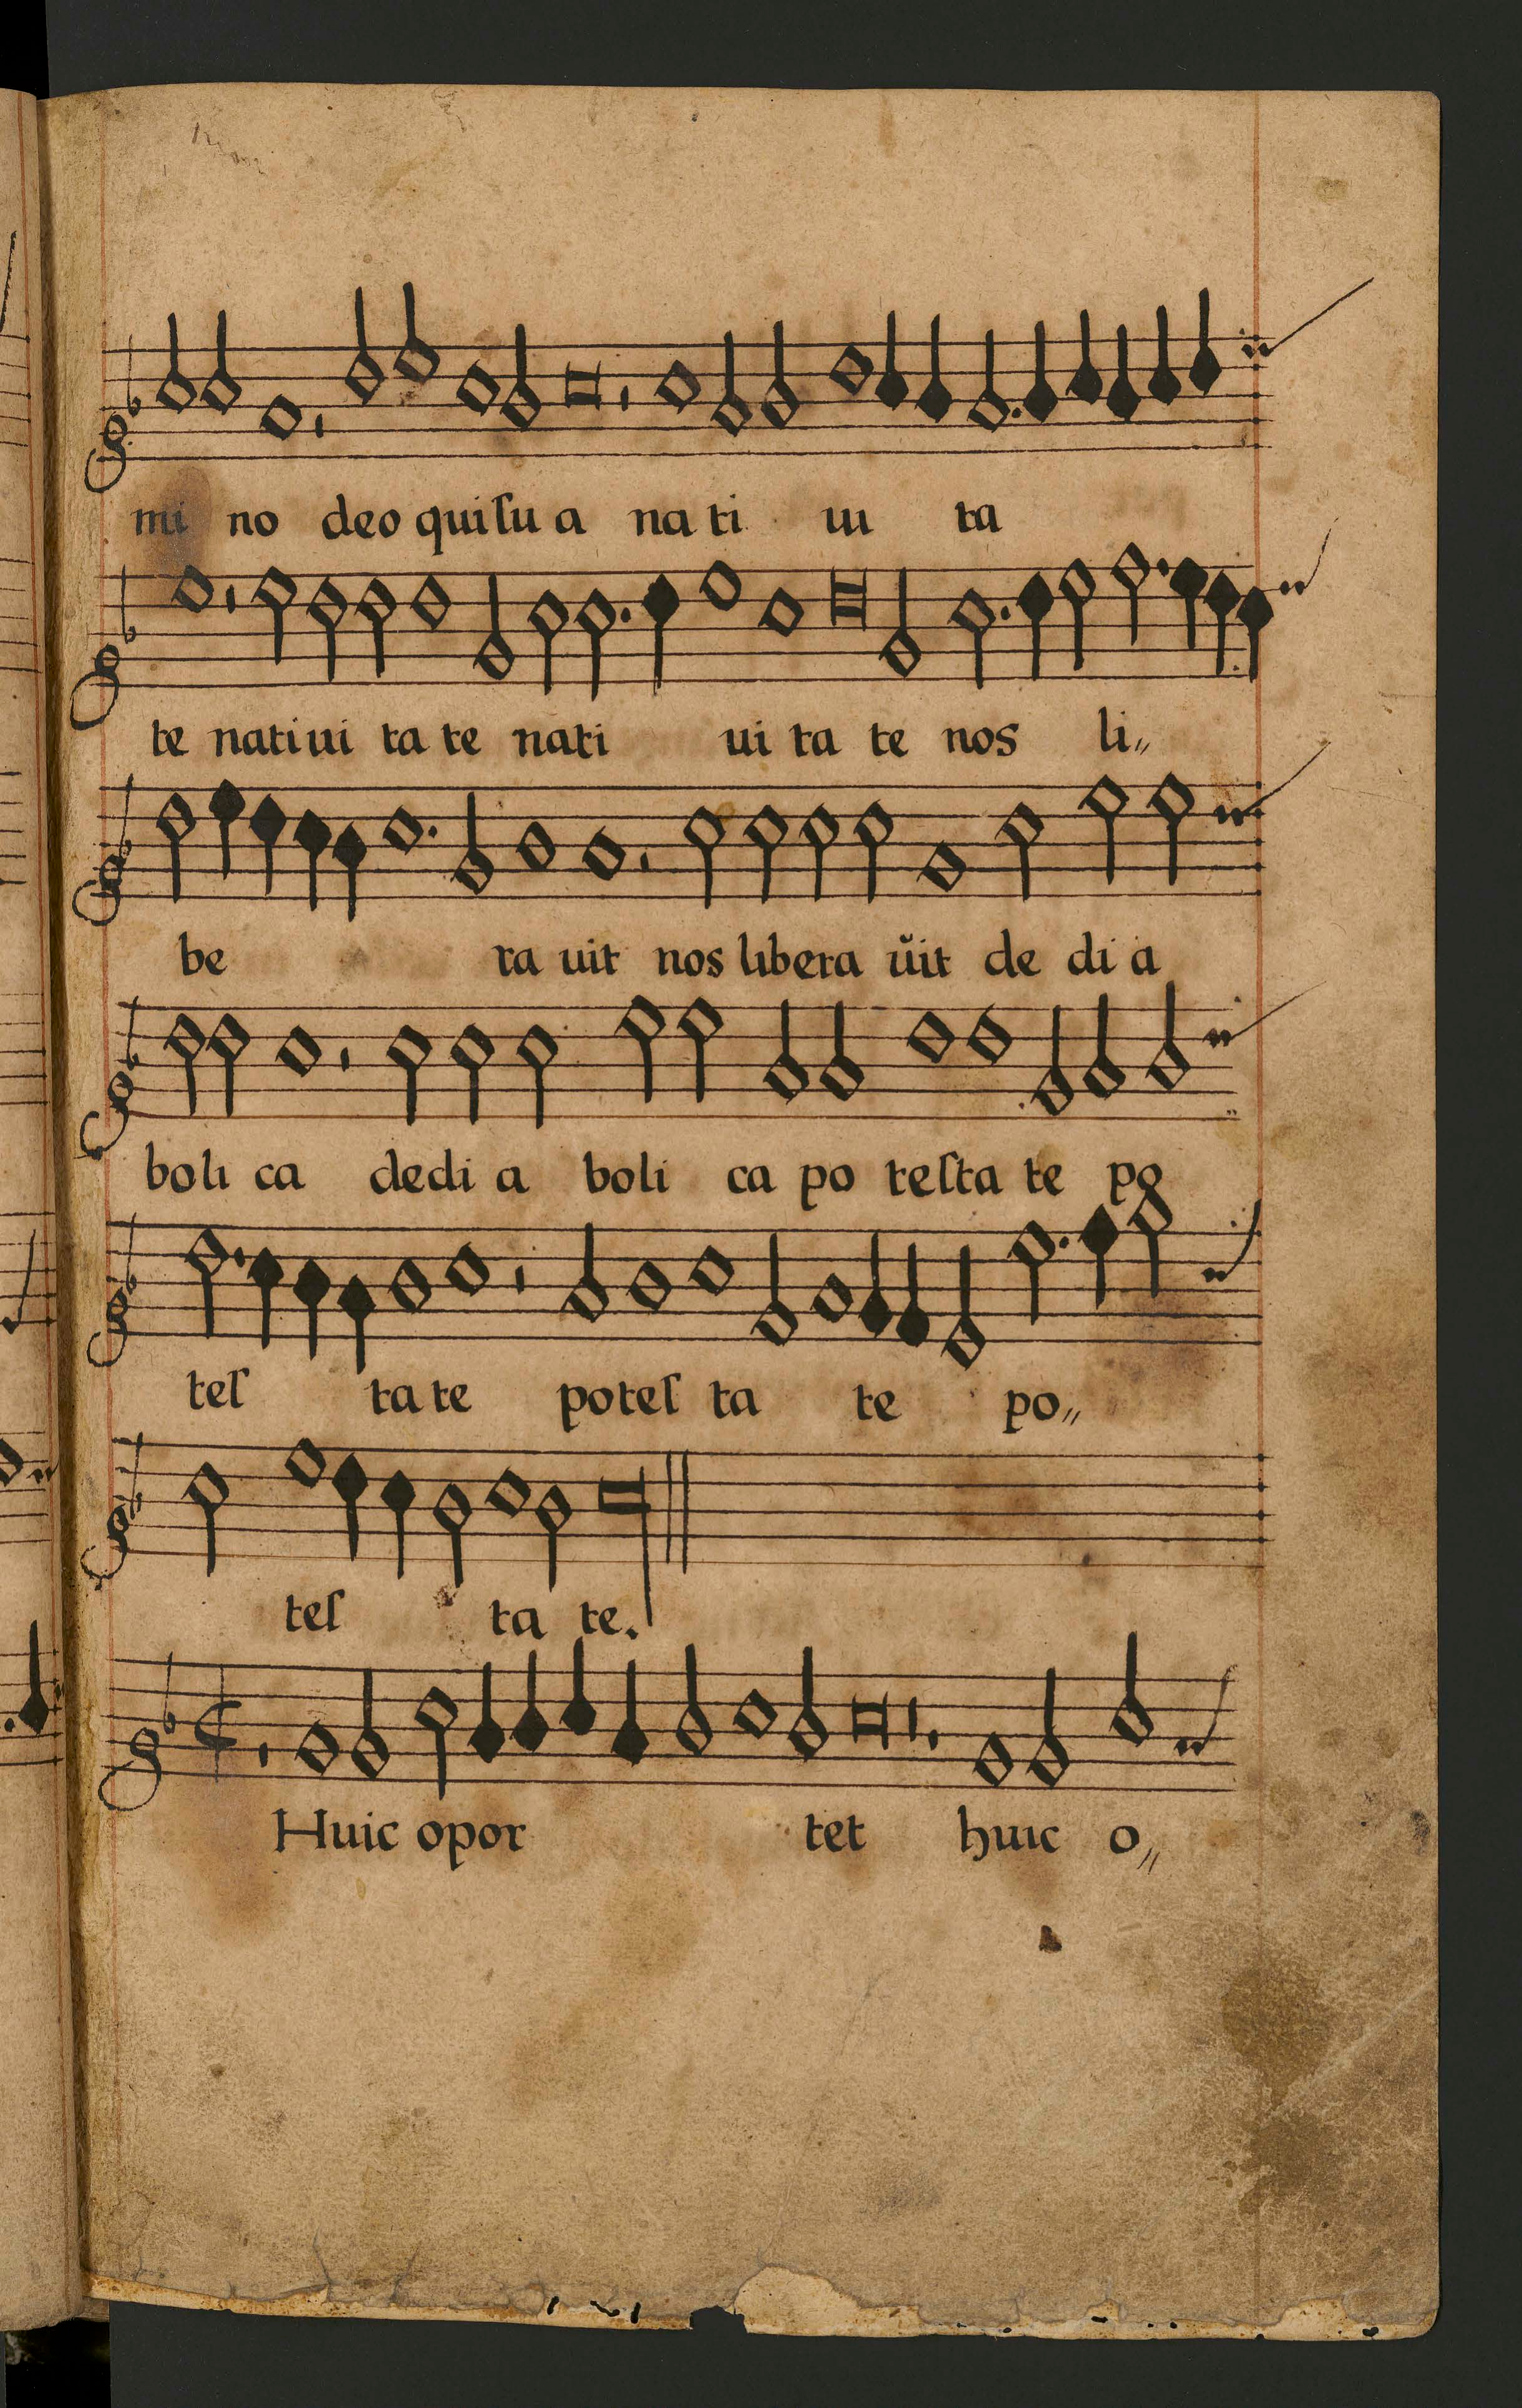 mi no deo qui ſu a na ti ui ta
te nati ui ta te nati ui ta te nos li〃
be ra uit nos libera ũit de di a
boli ca dedi a boli ca po teſta te po
teſ ta te poteſ ta te po〃
teſ ta te.
Huic opor tet huic o〃